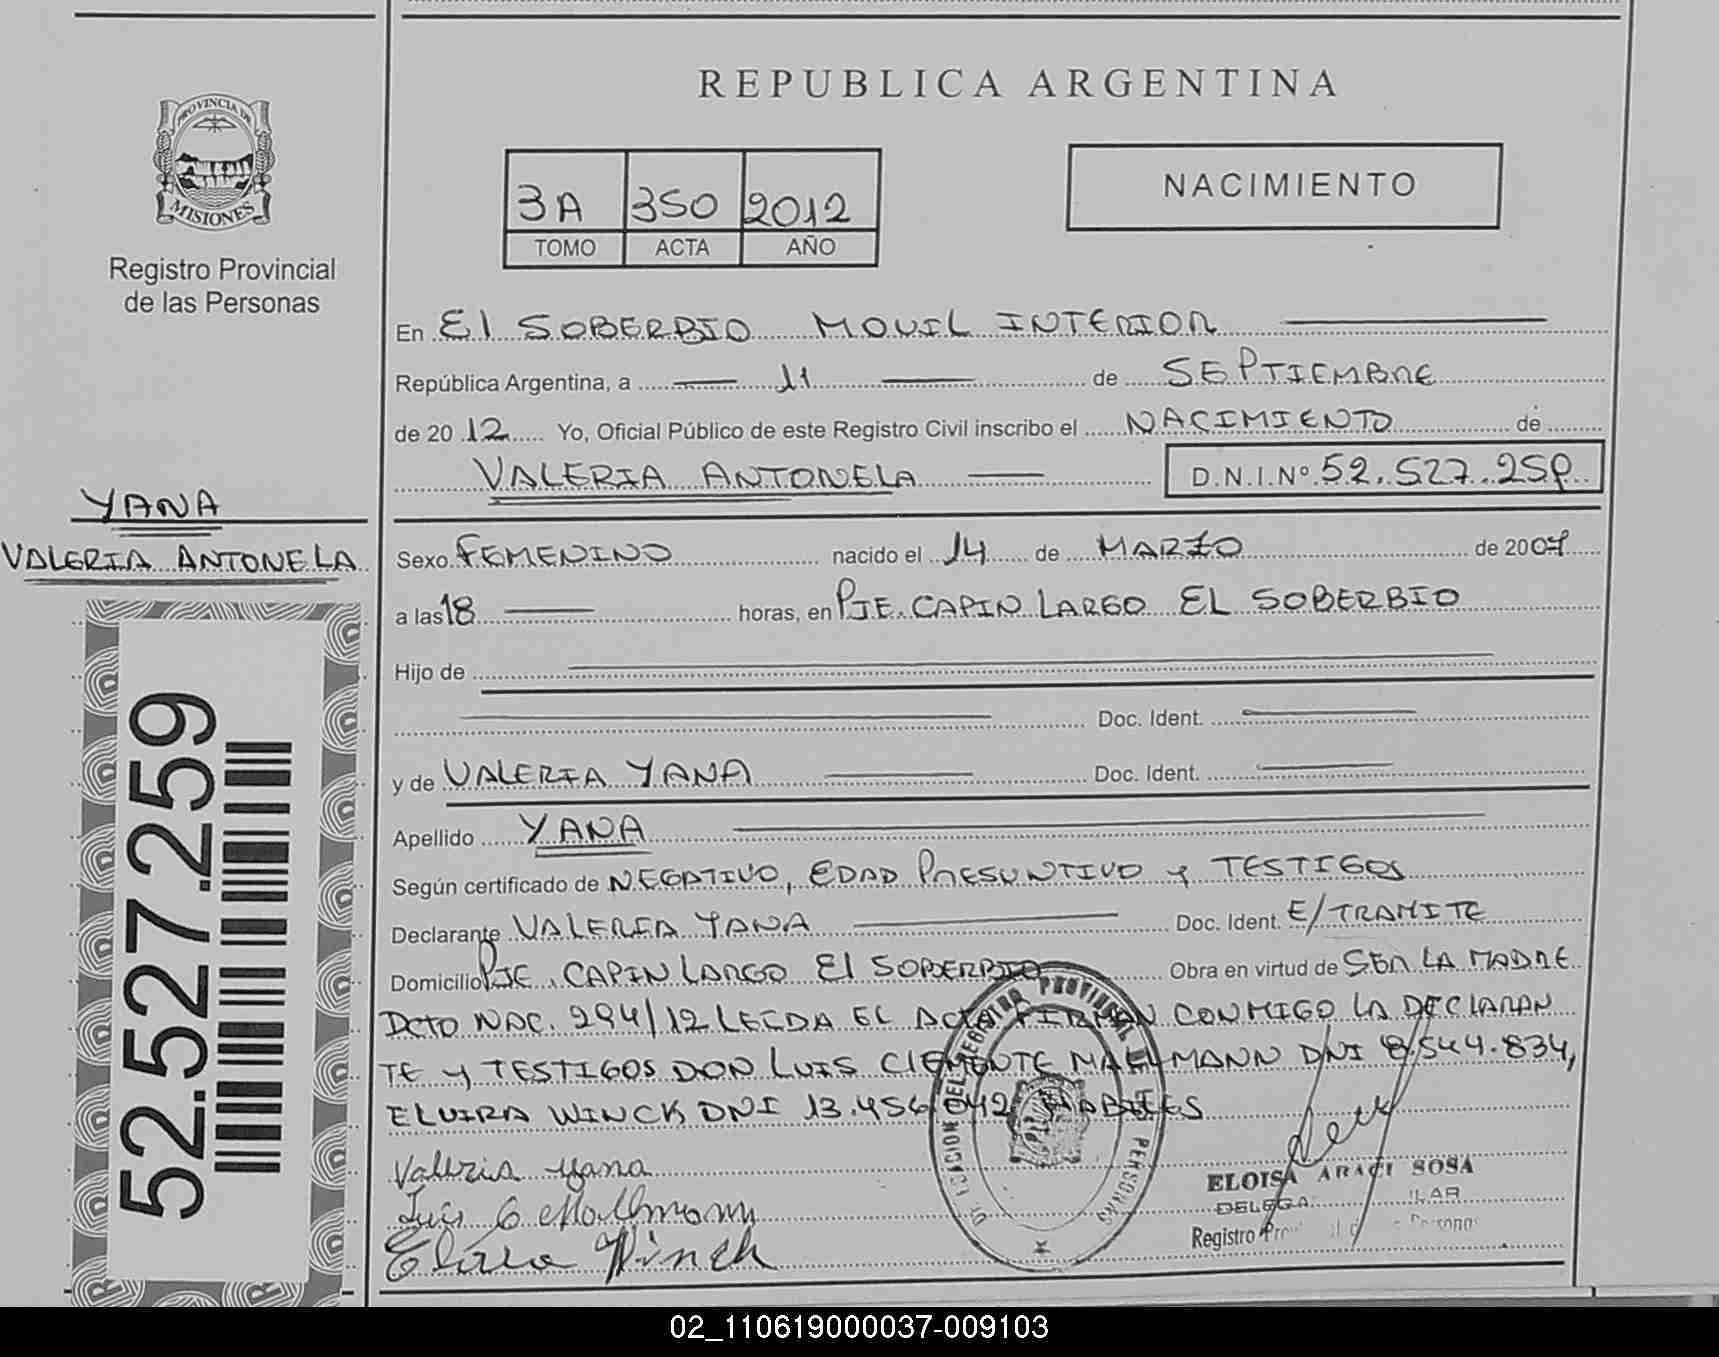 REPUBLICA ARGENTINA
PROVINCIA DE
MISIONES
Registro Provincial
de las Personas
3A 350 2012
TOMO ACTA AÑO
NACIMIENTO
En El SOBERBIO MOVIL INTERIOR
República Argentina, a 11 de SEPTIEMBRE
de 20 12 Yo, Oficial Público de este Registro Civil inscribo el NACIMIENTO de
VALERIA ANTONELA D.N.I.Nº 52.527.259
YANA
VALERIA ANTONELA
52.527.259
Sexo FEMENINO nacido el 14 de MARZO de 2007
a las 18 horas, en PJE. CAPIN LARGO EL SOBERBIO
Hijo de
Doc. Ident.
y de VALERIA YANA Doc. Ident.
Apellido YANA
Según certificado de NEGATIVO, EDAD PRESUNTIVO y TESTIGOS
Declarante VALERIA YANA Doc. Ident. E/TRAMITE
Domicilio PJE. CAPIN LARGO El SOBERBIO Obra en virtud de SER LA MADRE
Dcto NAC. 294/12 LEIDA EL ACTA FIRMAN CONMIGO LA DECLARAN
TE y TESTIGOS DON LUIS CLEMENTE MAHLMANN DNI 8.544.834,
ELVIRA WINCK DNI 13.456.042 HABILES
Valeria yana
Luis C Mallmann
Elvira Winck
DELEGACION DEL REGISTRO PROVINCIAL DE PERSONAS
ELOISA ARACI SOSA
DELEGA
Registro
02_110619000037-009103